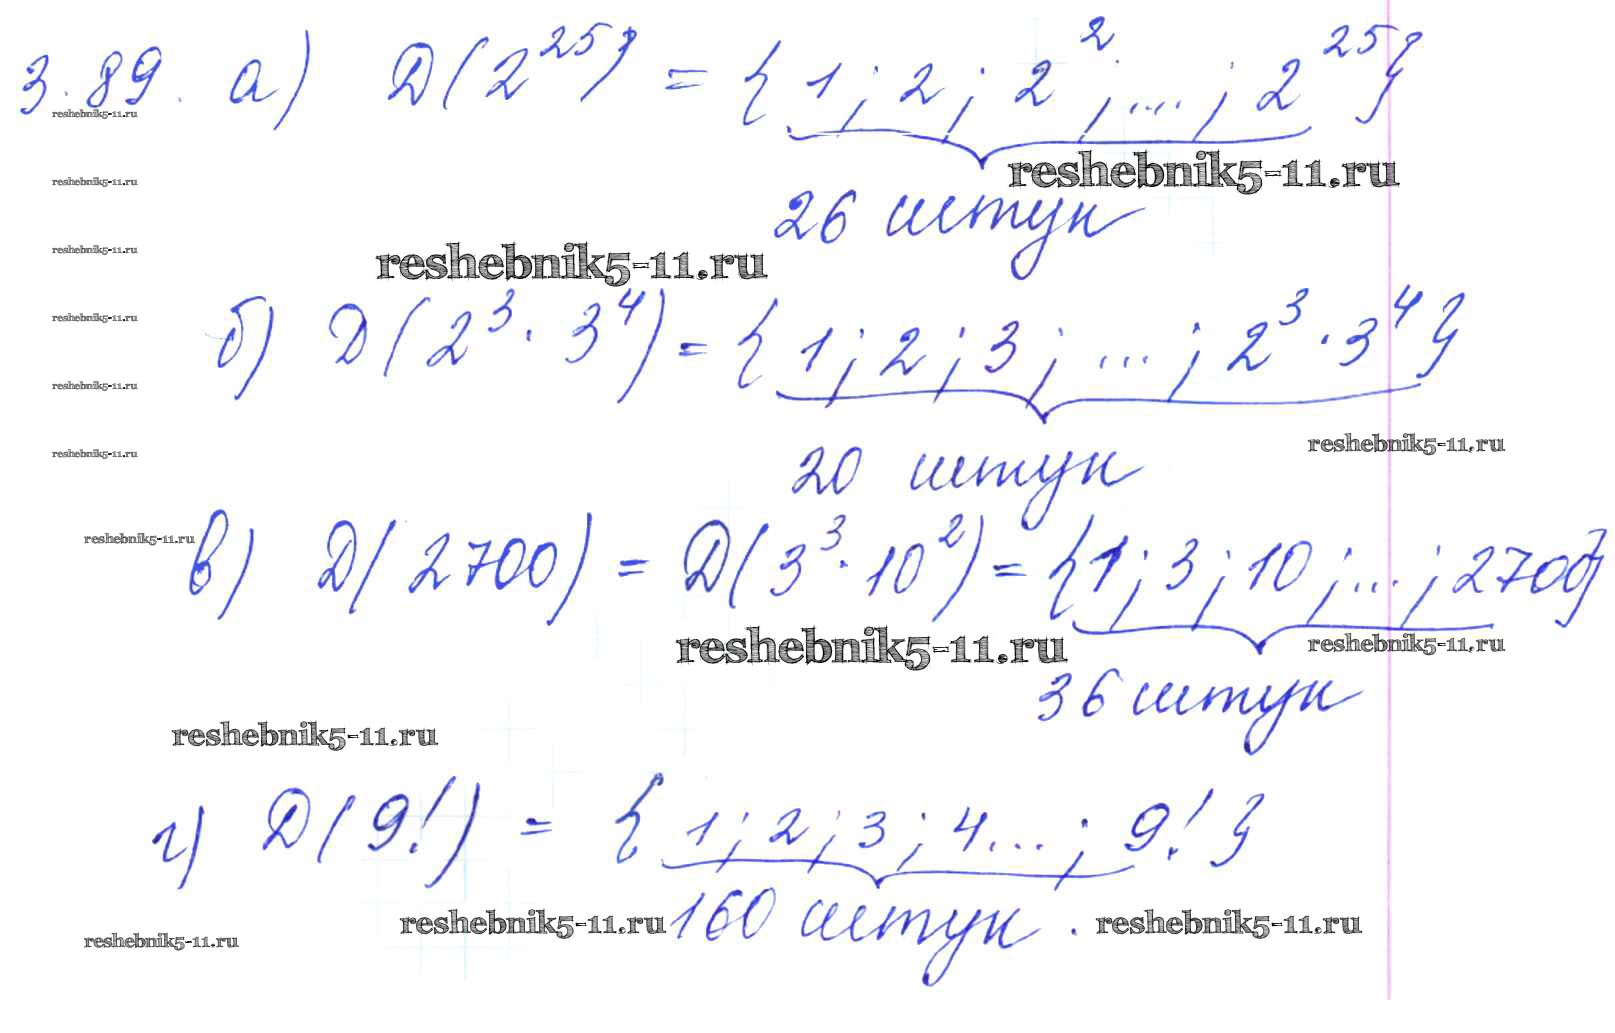 3.89. а) D(2^25) = {1; 2; 2^2; ...; 2^25}
reshebnik5-11.ru
reshebnik5-11.ru
reshebnik5-11.ru
26 штук
reshebnik5-11.ru
reshebnik5-11.ru
reshebnik5-11.ru
б) D(2^3 · 3^4) = {1; 2; 3; ...; 2^3 · 3^4}
reshebnik5-11.ru
reshebnik5-11.ru
reshebnik5-11.ru
20 штук
reshebnik5-11.ru
в) D(2700) = D(3^3 · 10^2) = {1; 3; 10; ...; 2700}
reshebnik5-11.ru
reshebnik5-11.ru
36 штук
reshebnik5-11.ru
г) D(9!) = {1; 2; 3; 4...; 9!}
reshebnik5-11.ru 160 штук. reshebnik5-11.ru
reshebnik5-11.ru